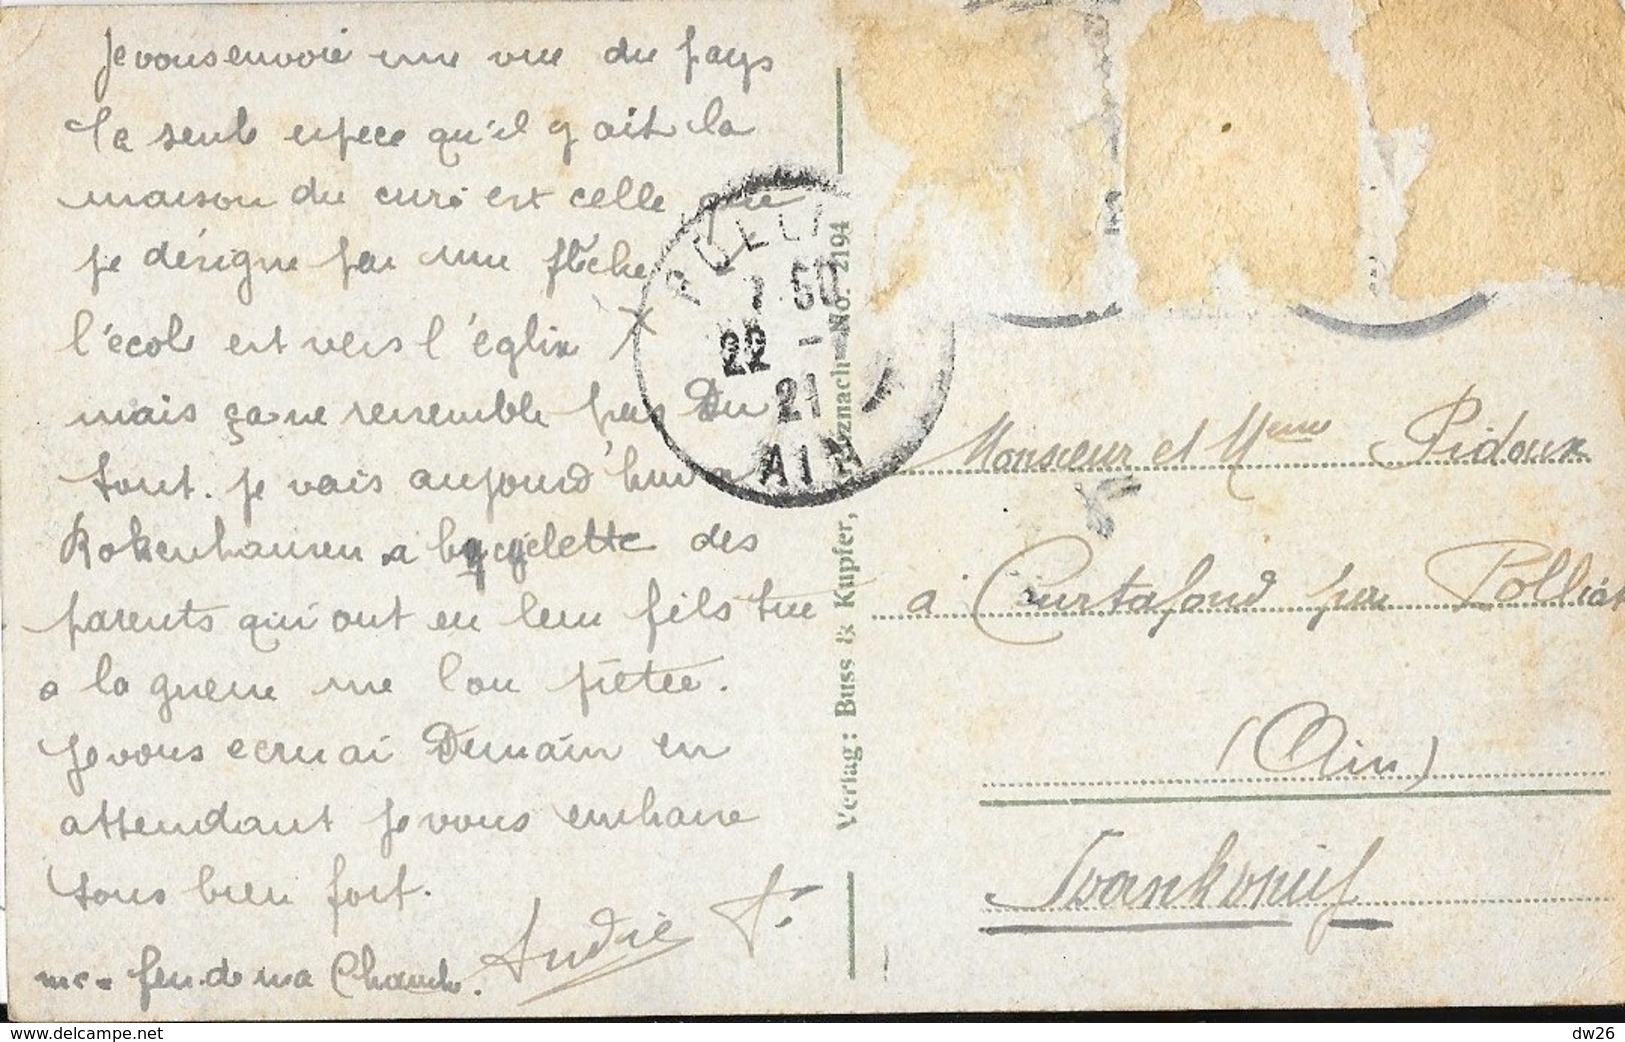 Je vous envoie une vue du pays
le seul espece qu'il y ait la
maison du curé est celle que
je désigne par une flèche
l'école est vers l'église X
mais ça ne ressemble pas Du
tout. Je vais aujourd'hui a
Rokenhausen a bycyclette des
parents qui ont eu leur fils tue
a la guerre me l'on prêtee.
Je vous ecrirai Demain en
attendant je vous embrasse
tous bien fort.
André P.
fen. de ma Chamb.
POLLIAT
7 50
22 -
21
AIN
Verlag: Buss & Kupfer, Kreuznach No. 2194
Monsieur et Mme Pidoux
à Curtafond par Polliat
(Ain)
Frankreich
www.delcampe.net
dw26